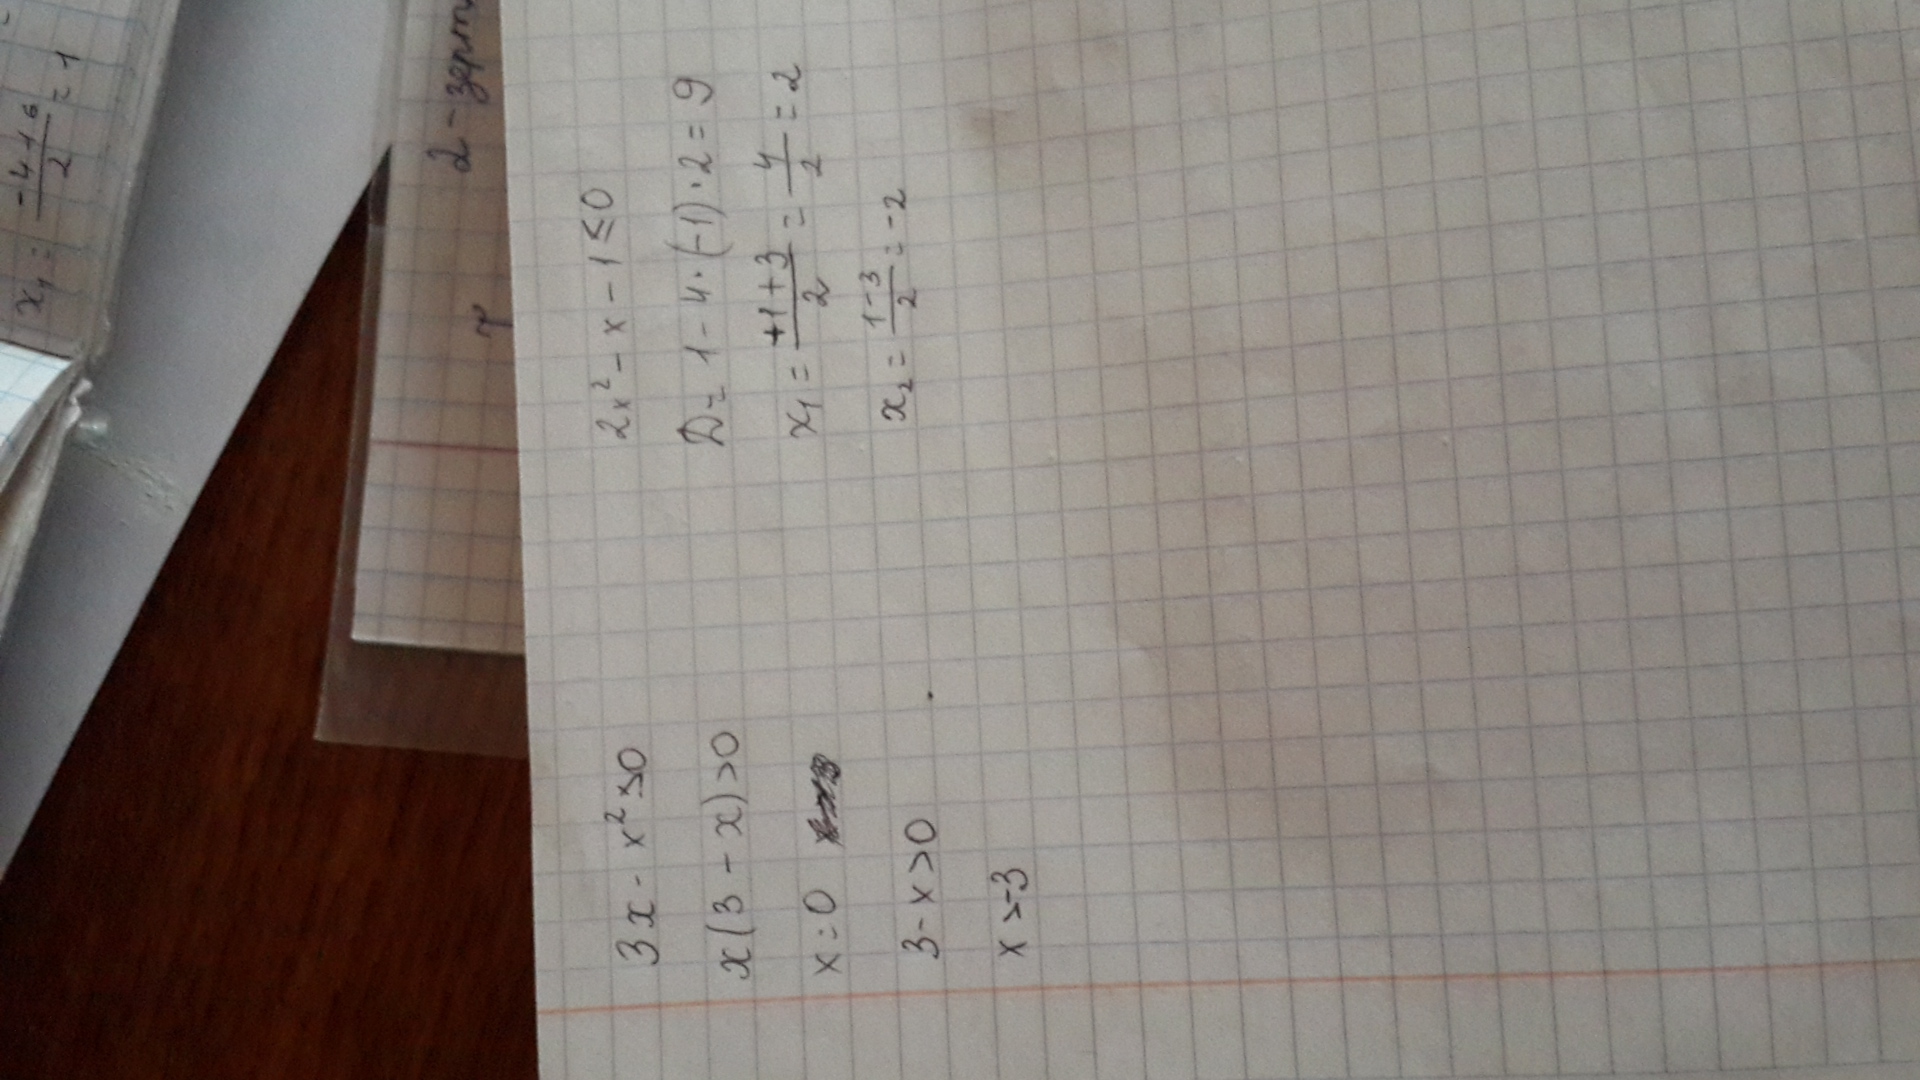 x₁ = (-4+6)/2 = 1
2 -
3x - x² ≥ 0
x(3 - x) > 0
x = 0
3 - x > 0
x > -3
2x² - x - 1 ≤ 0
D = 1 - 4 · (-1) · 2 = 9
x₁ = (+1+3)/2 = 4/2 = 2
x₂ = (1-3)/2 = -2